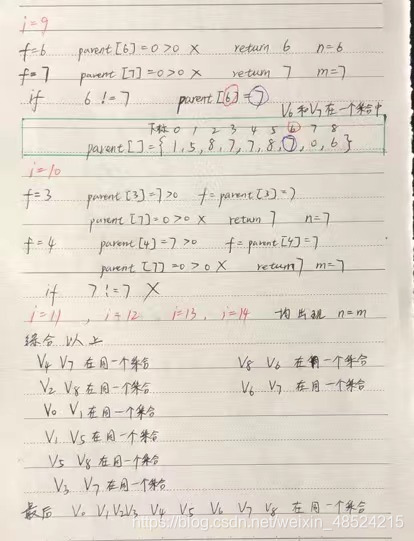 i=9
f=6 parent[6]=0>0 X return 6 n=6
f=7 parent[7]=0>0 X return 7 m=7
if 6!=7 parent[6]=7
V6和V7在一个集合中
下标 0 1 2 3 4 5 6 7 8
parent[]={1,5,8,7,7,8,7,0,6}
i=10
f=3 parent[3]=7>0 f=parent[3]=7
parent[7]=0>0 X return 7 n=7
f=4 parent[4]=7>0 f=parent[4]=7
parent[7]=0>0 X return 7 m=7
if 7!=7 X
i=11, i=12 i=13, i=14 均出现 n=m
综合以上
V4 V7 在同一个集合 V8 V6 在同一个集合
V2 V8 在同一个集合 V6 V7 在同一个集合
V0 V1 在同一个集合
V1 V5 在同一个集合
V5 V8 在同一个集合
V3 V7 在同一个集合
最后 V0 V1 V2 V3 V4 V5 V6 V7 V8 在同一个集合
https://blog.csdn.net/weixin_48524215